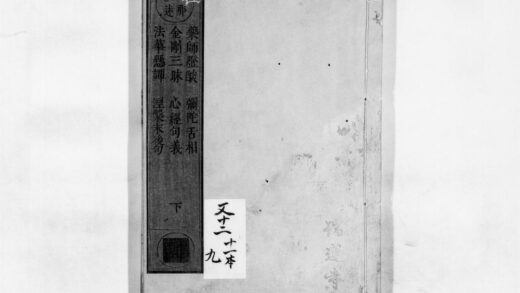 藥師燈談 彌陀舌相
金剛三昧 心經句義
法華懸譚 涅槃末後句
下
又十二
十一本
九